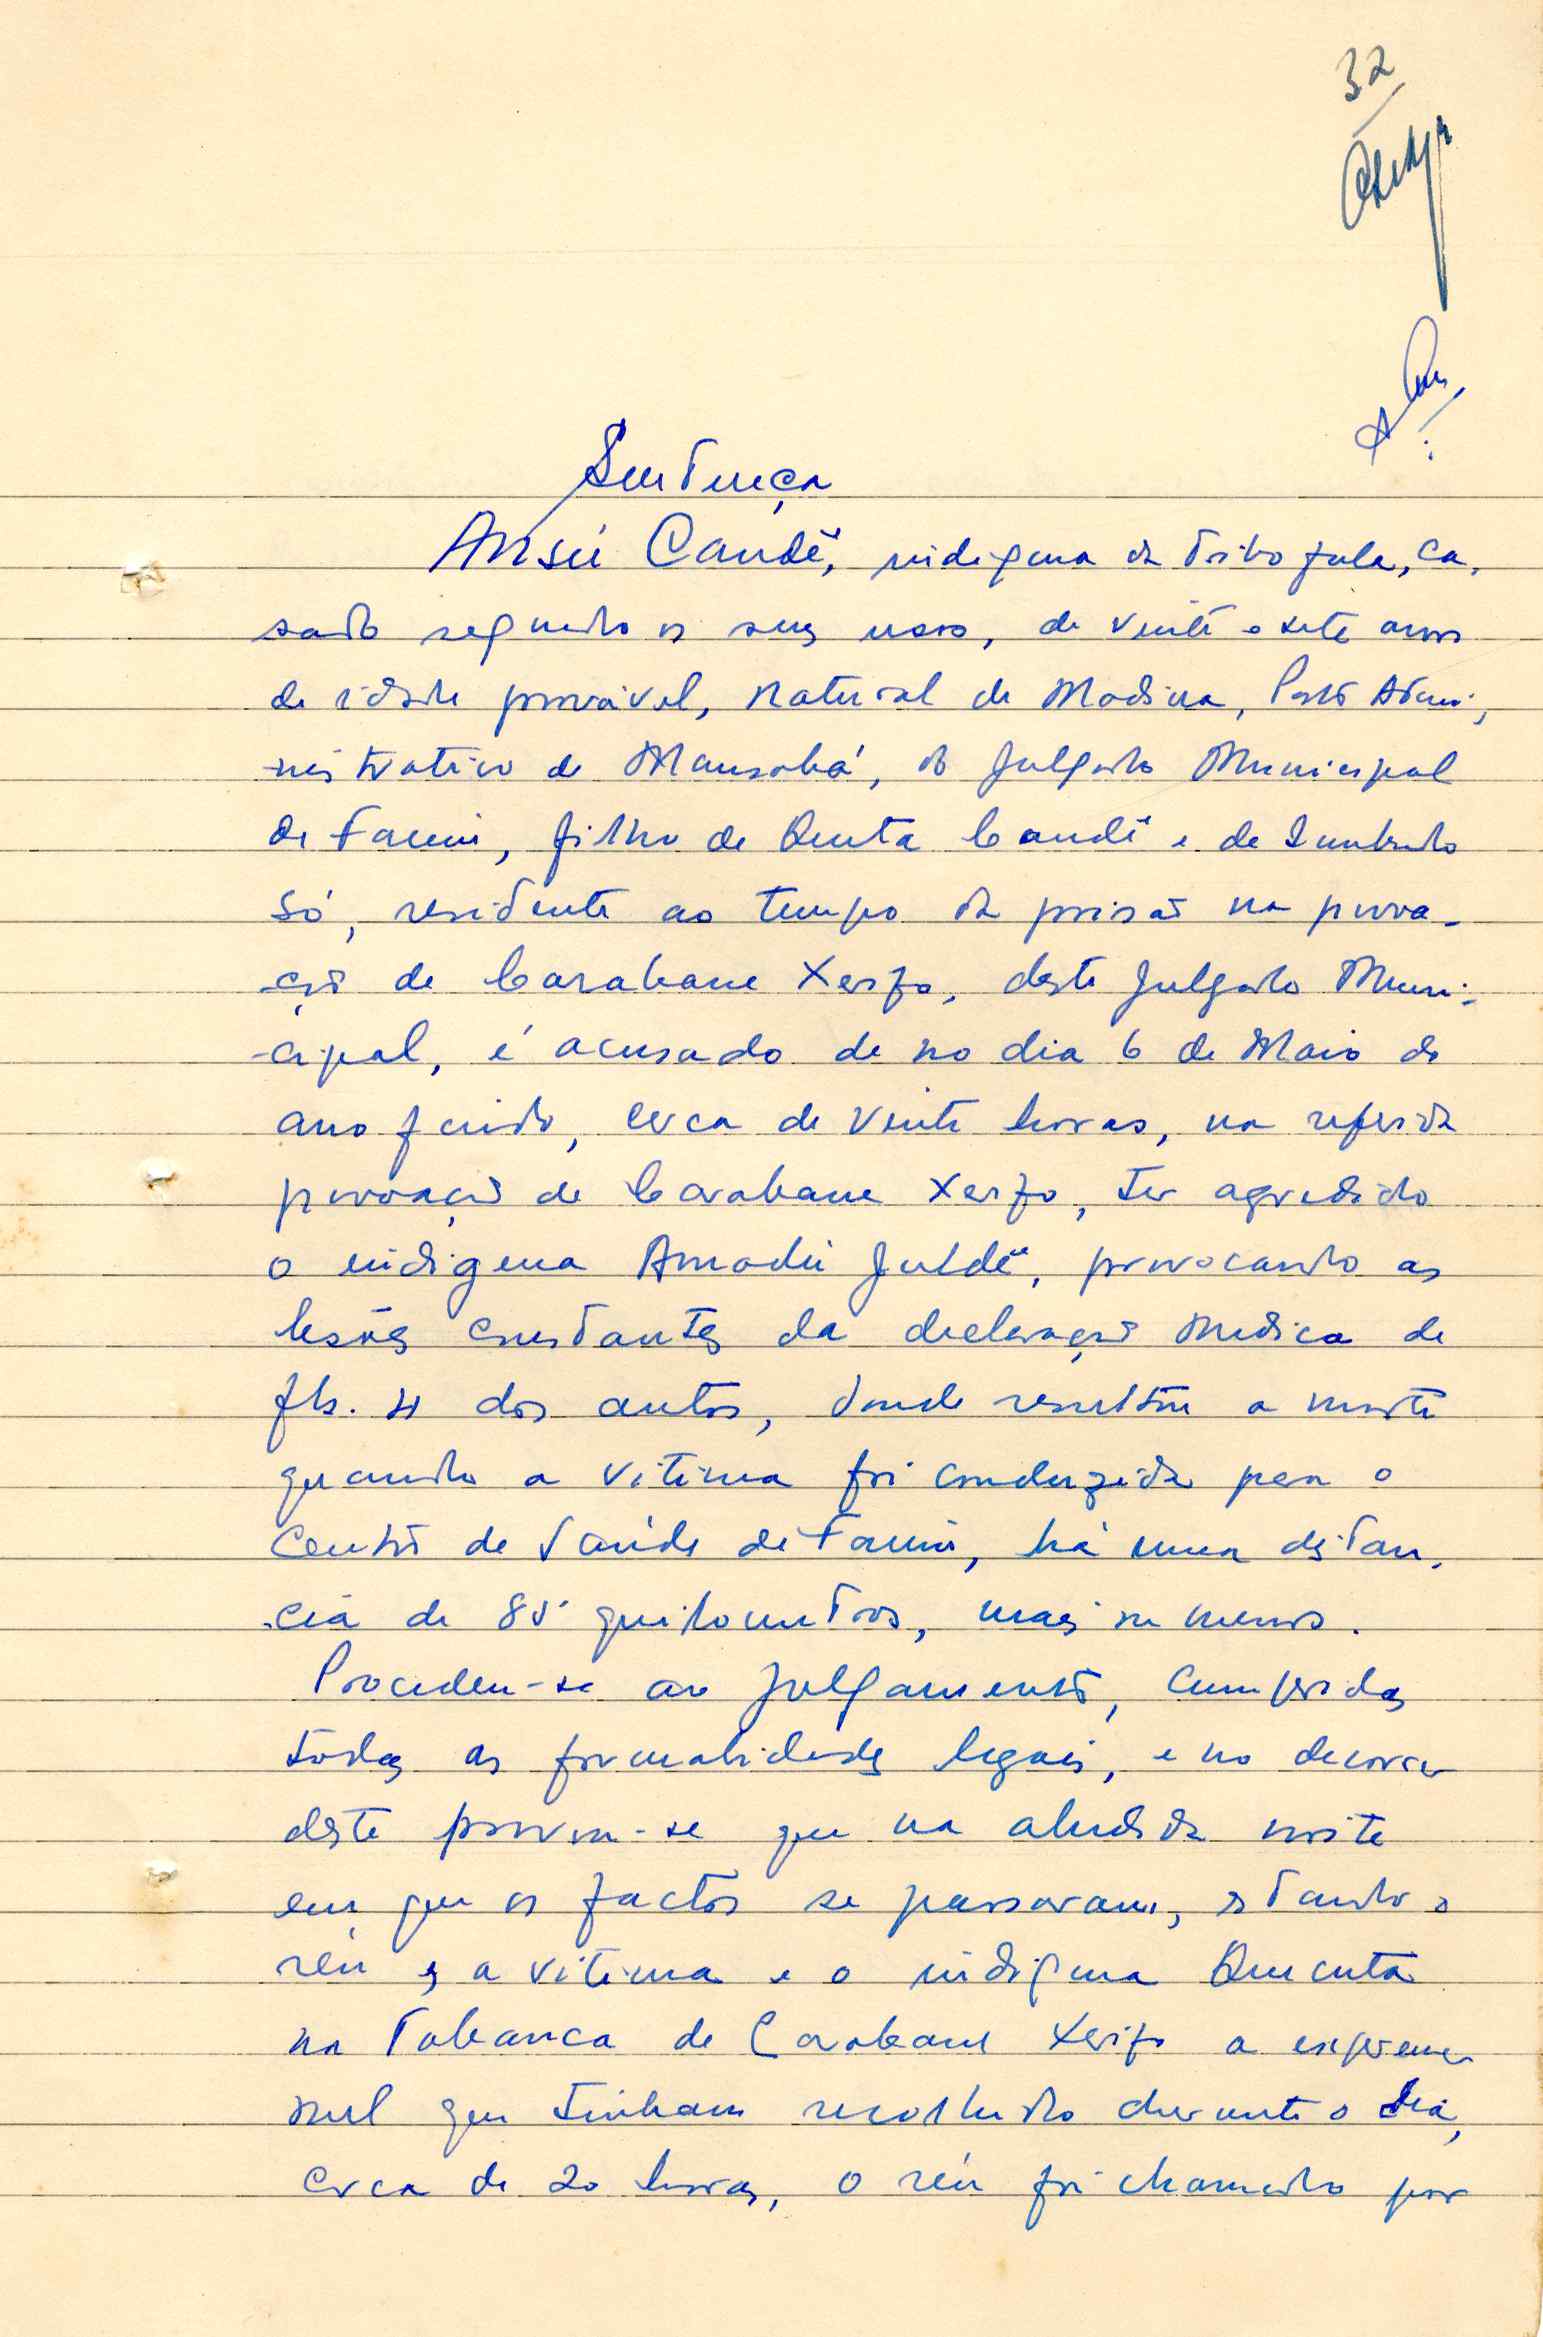 32
Sentença
Ansú Candê, indigena da tribo fula, ca-
sado segundo os seus usos, de vinte e sete anos
de idade provável, natural de Madina, Posto Admi-
nistrativo de Mansabá, do Julgado Municipal
de Farim, filho de Quuta Candê e de
Só, residente ao tempo da prisão na povoa-
ção de Carabane Xerifo, deste Julgado Muni-
cipal, é acusado de no dia 6 de Maio do
ano findo, cerca de vinte horas, na referida
povoação de Carabane Xerifo, ter agredido
o indigena Amadú Juldê, provocando as
lesões constantes da declaração medica de
fls. 4 dos autos, donde resultou a morte
quando a vitima foi conduzida para o
Centro de Saúde de Farim, há uma distan-
cia de 85 quilometros, mais ou menos.
Procedeu-se ao julgamento, cumpridas
todas as formalidades legais, e no decorrer
deste provou-se que na aludida noite
em que os factos se passaram, estando o
réu e a vitima e o indigena
na Tabanca de Carabane Xerifo a espremer
mel que tinham recolhido durante o dia,
cerca de 20 horas, o réu foi chamado por